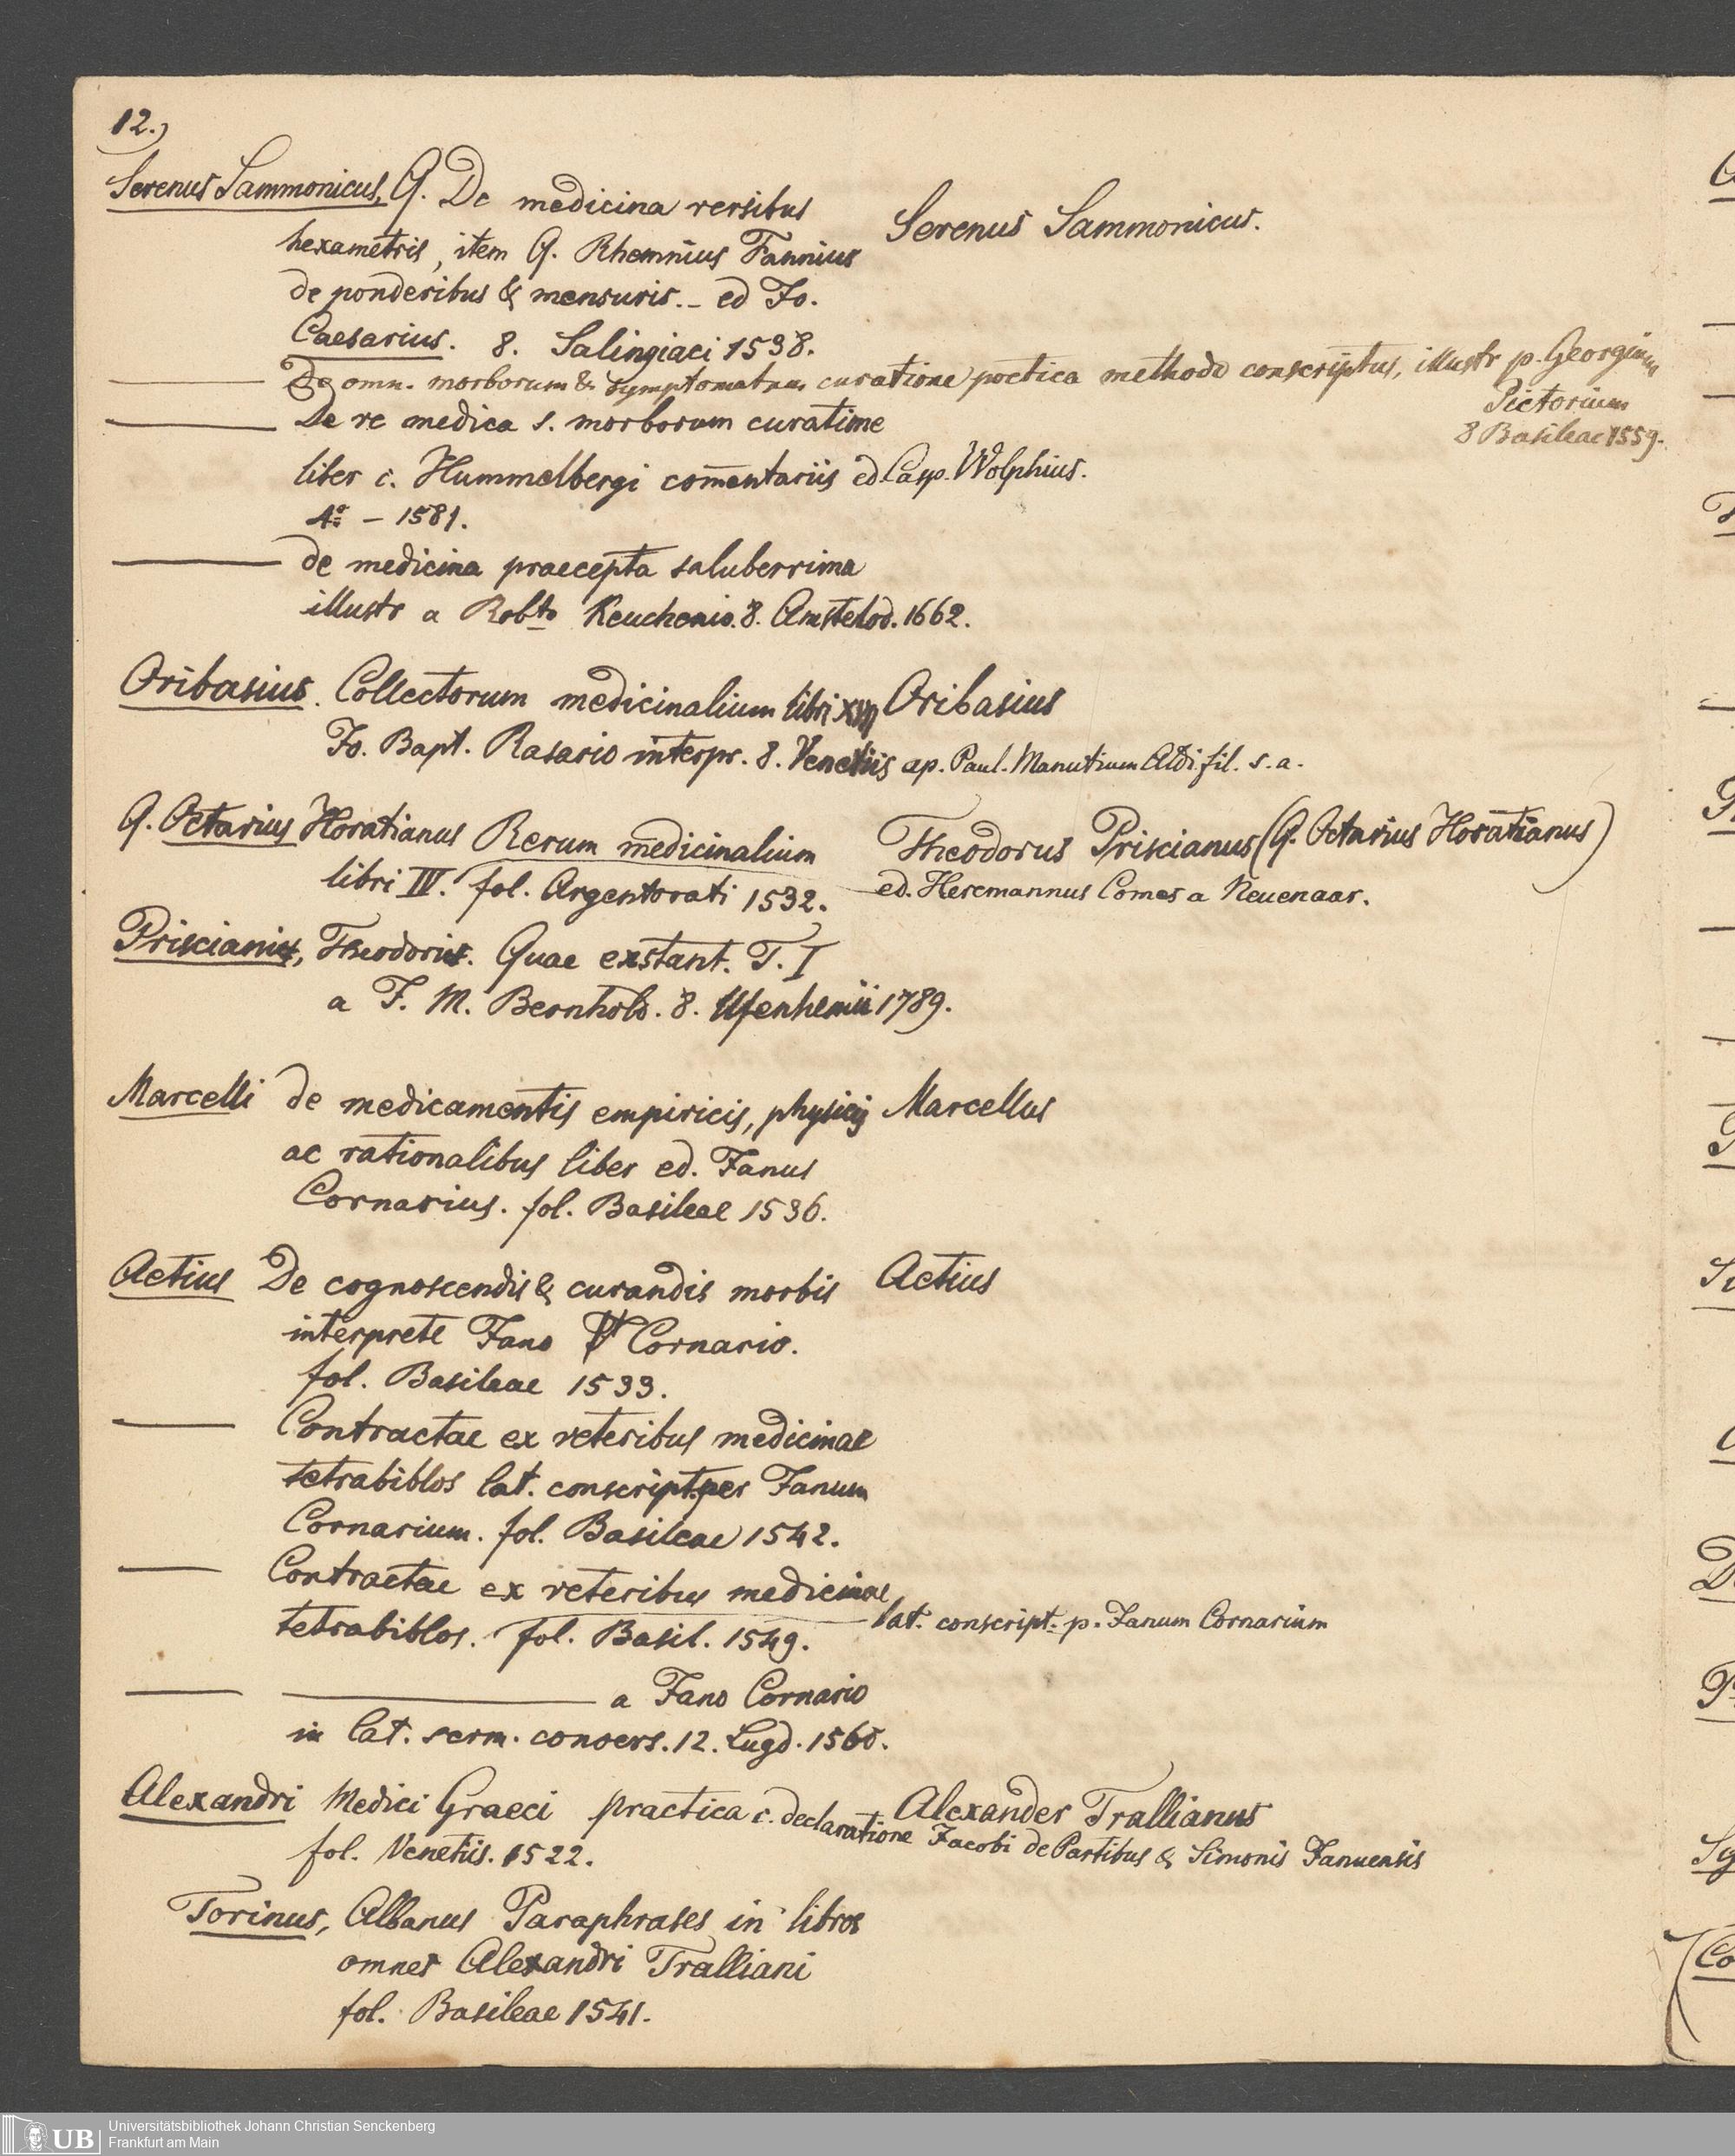 12.)
Serenus Sammonicus, Q. De medicina versibus
Serenus Sammonicus.
hexametris, item Q. Rhemnius Fannius
de ponderibus & mensuris. - ed Jo.
Caesarius. 8. Salingiaci 1538.
De omn. morborum & symptomatum curatione poetica methodo conscriptus, illustr p. Georgium
Pictorium
8 Basileae 1559.
De re medica s. morborum curatione
liber c. Hummelbergi com̅entariis ed. Casp. Wolphius.
4º - 1581.
de medicina praecepta saluberrima
illustr a Robto Keuchenio. 8. Amstelod. 1662.
Oribasius. Collectorum medicinalium libri XVII
Oribasius
Jo. Bapt. Rasario interpr. 8. Venetiis ap. Paul. Manutium Aldi fil. s. a.
Q. Octavius Horatianus Rerum medicinalium
Theodorus Priscianus (Q. Octavius Horatianus)
libri IV. fol. Argentorati 1532.
ed. Heremannus Comes a Neuenaar.
Priscianus, Theodorus. Quae exstant. T. I
a J. M. Bernhold. 8. Ufenhemii 1789.
Marcelli de medicamentis empiricis, physicis
Marcellus
ac rationalibus liber ed. Janus
Cornarius. fol. Basileae 1536.
Aetius De cognoscendis & curandis morbis
Aetius
interprete Jano Cornario.
fol. Basileae 1533.
Contractae ex veteribus medicinae
tetrabiblos lat. conscript. per Janum
Cornarium. fol. Basileae 1542.
Contractae ex veteribus medicinae
tetrabiblos. fol. Basil. 1549.
lat. conscript. p. Janum Cornarium
a Jano Cornario
in lat. serm. convers. 12. Lugd. 1560.
Alexandri Medici Graeci practica c. declaratione Jacobi de Partibus & Simonis Januensis
Alexander Trallianus
fol. Venetiis. 1522.
Torinus, Albanus Paraphrases in libros
omnes Alexandri Tralliani
fol. Basileae 1541.
UB
Universitätsbibliothek Johann Christian Senckenberg
Frankfurt am Main